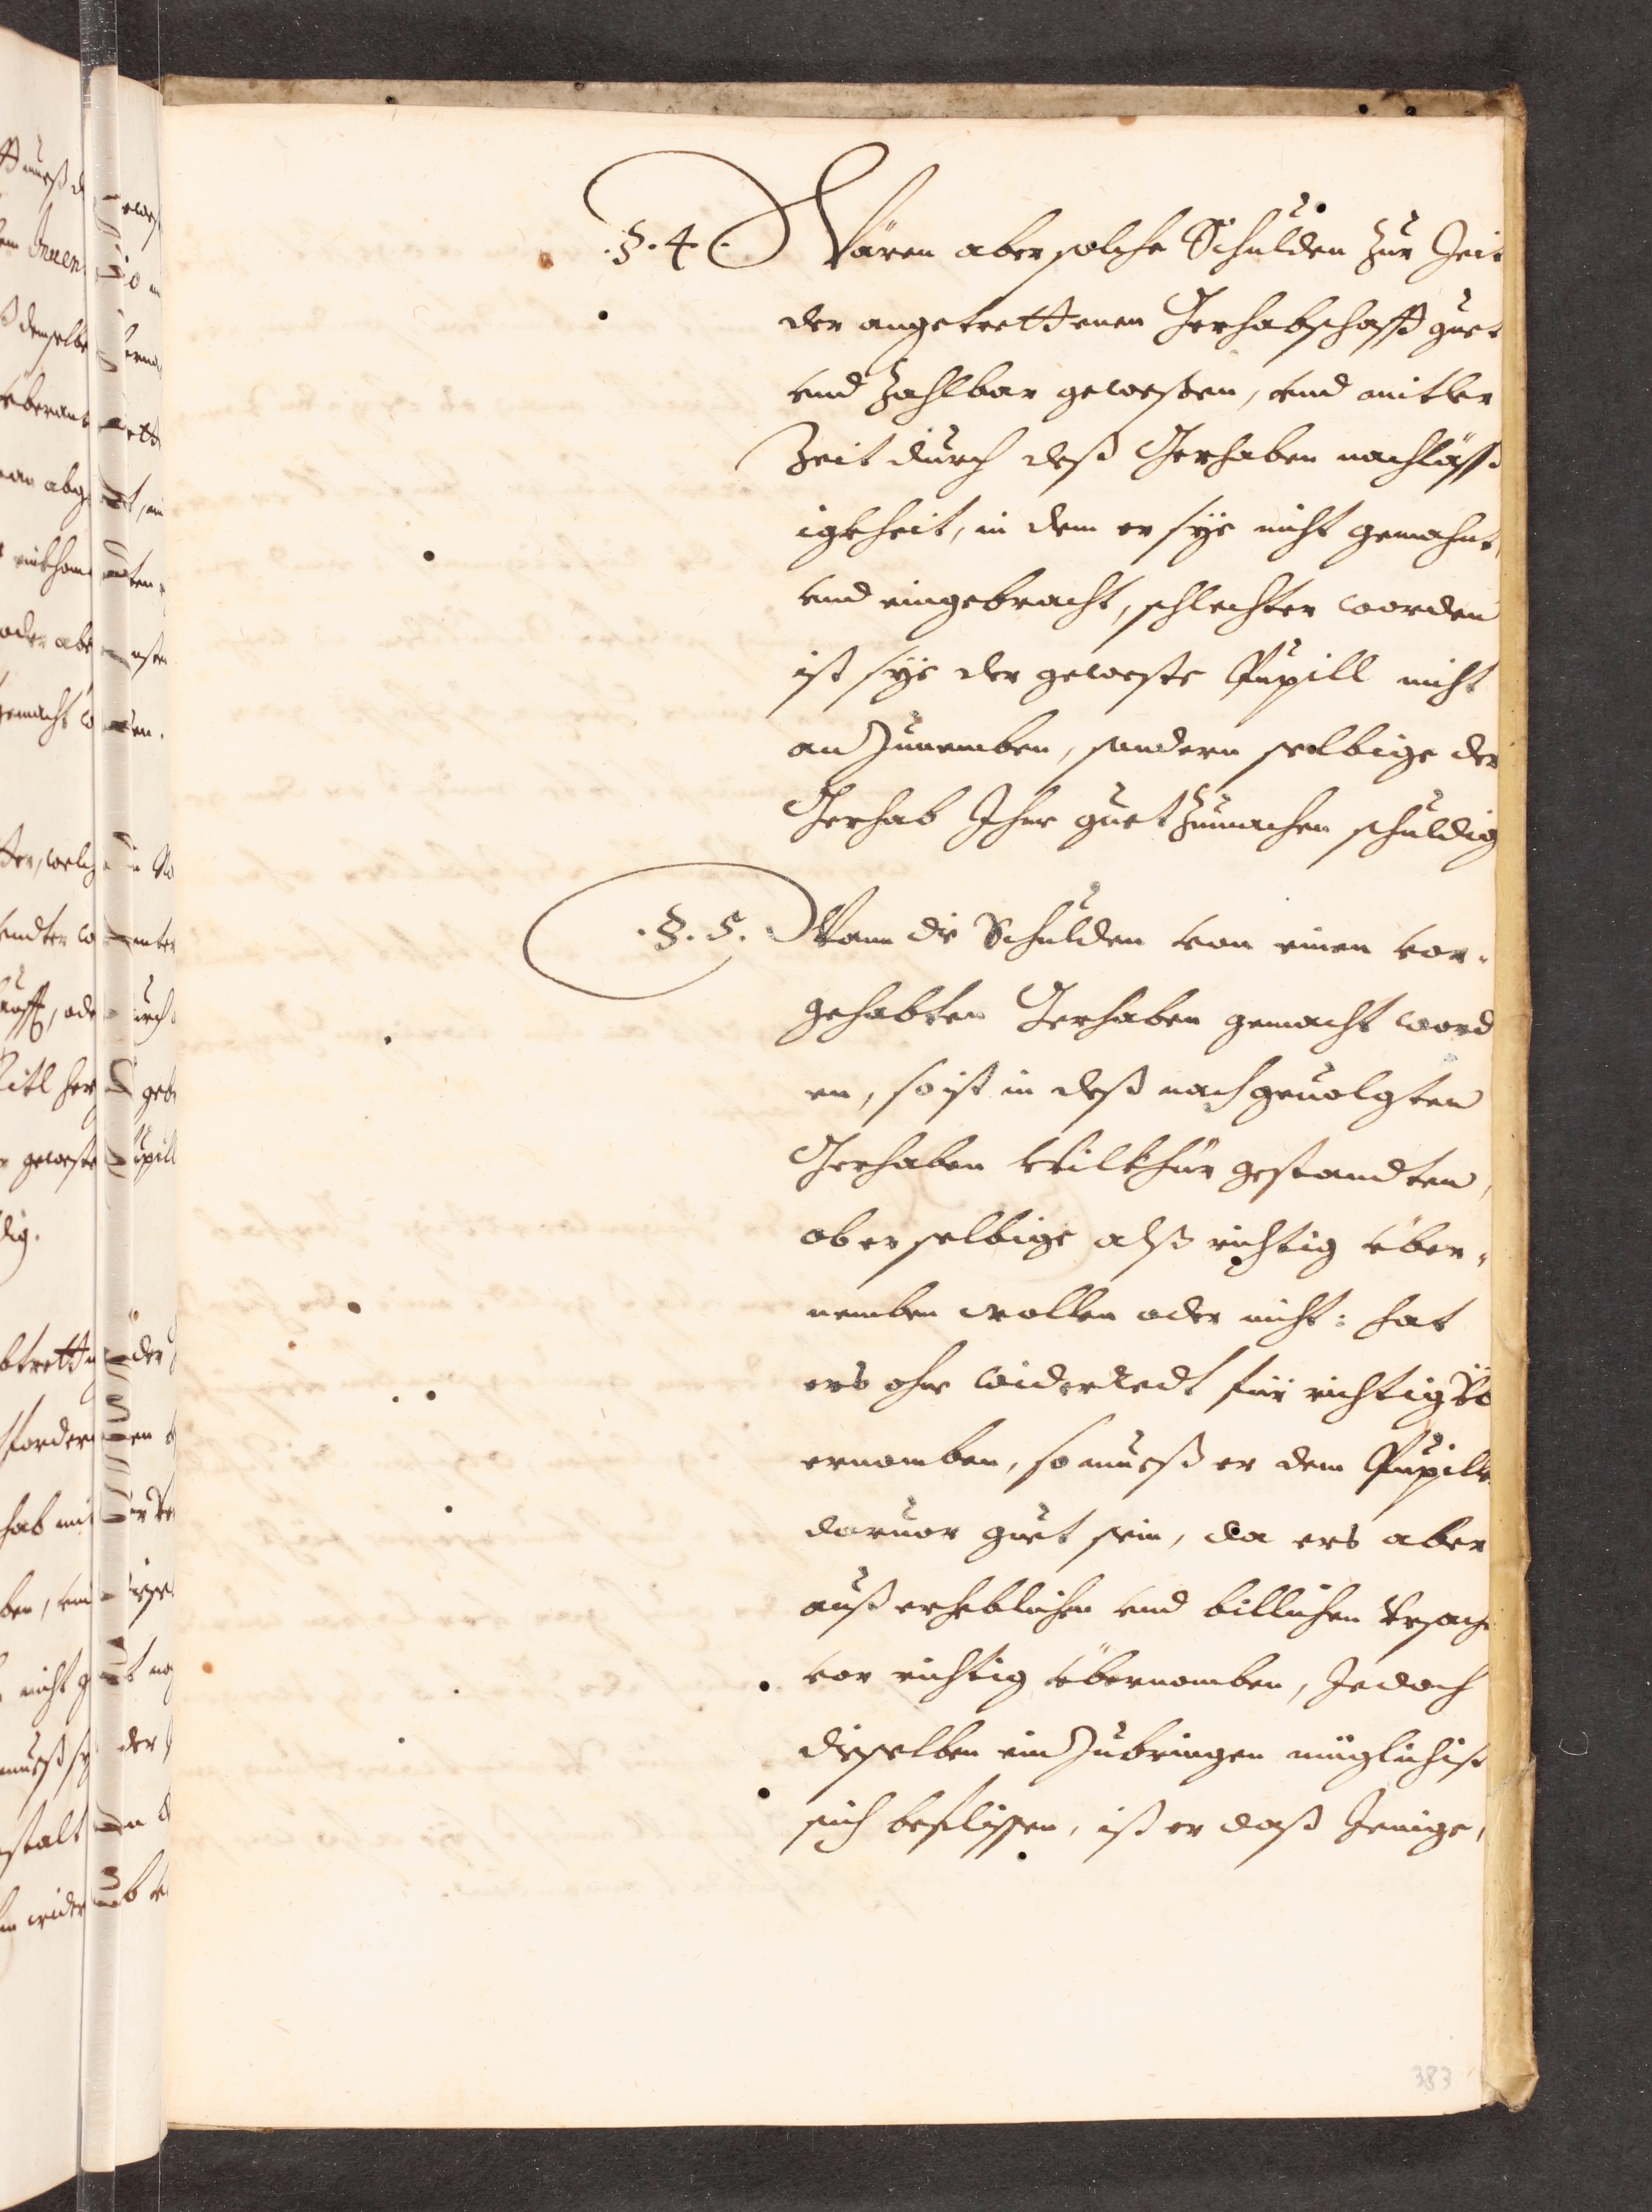 .§. 4. Wären aber solche Schulden zur Zeit
der angetrettenen Gerhabschafft guet
vnd zahlbar geweßen, vnd mitler
Zeit durch deß Gerhaben nachläss
igkheit, in dem er sÿe nicht gemahnt,
vnd eingebracht, schlechter worden
ist sÿe der geweste Pupill nicht
an Zunemben, sondern selbige der
Gerhab Ihme guet Zumachen schuldig
.§. 5. Wann die Schulden von einen vor-
gehabten Gerhaben gemacht word
en, so ist in deß nachgeuolgten
Gerhaben willkhür gestandten,
ob er selbige alß richtig über-
nemben wollen oder nicht: hat
ers ohne widerredt für richtig üb
ernomben, so mueß er dem Pupille
daruor guet sein, da ers aber
auß erheblichen vnd billichen Vrsach
vor richtig übernomben, Jedoch
dieselben ein Zubringen müglichist
sich beflissen, ist er daß Jenige,
383